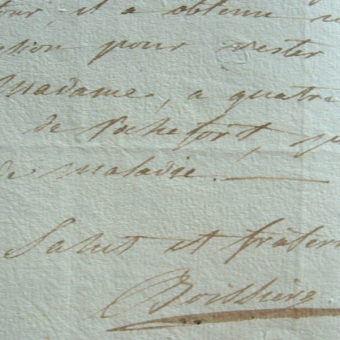 il a obtenu
pour rester
Madame, a quatre
de Rochefort,
de maladie. —
Salut et fratern
Boissière